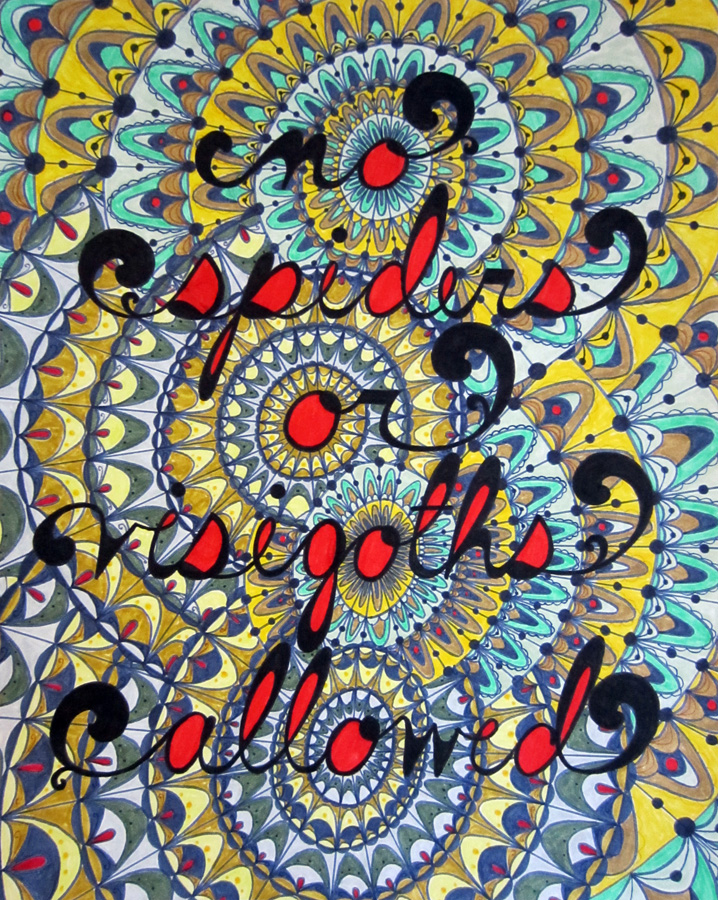 no
spiders
or
visigoths
allowed